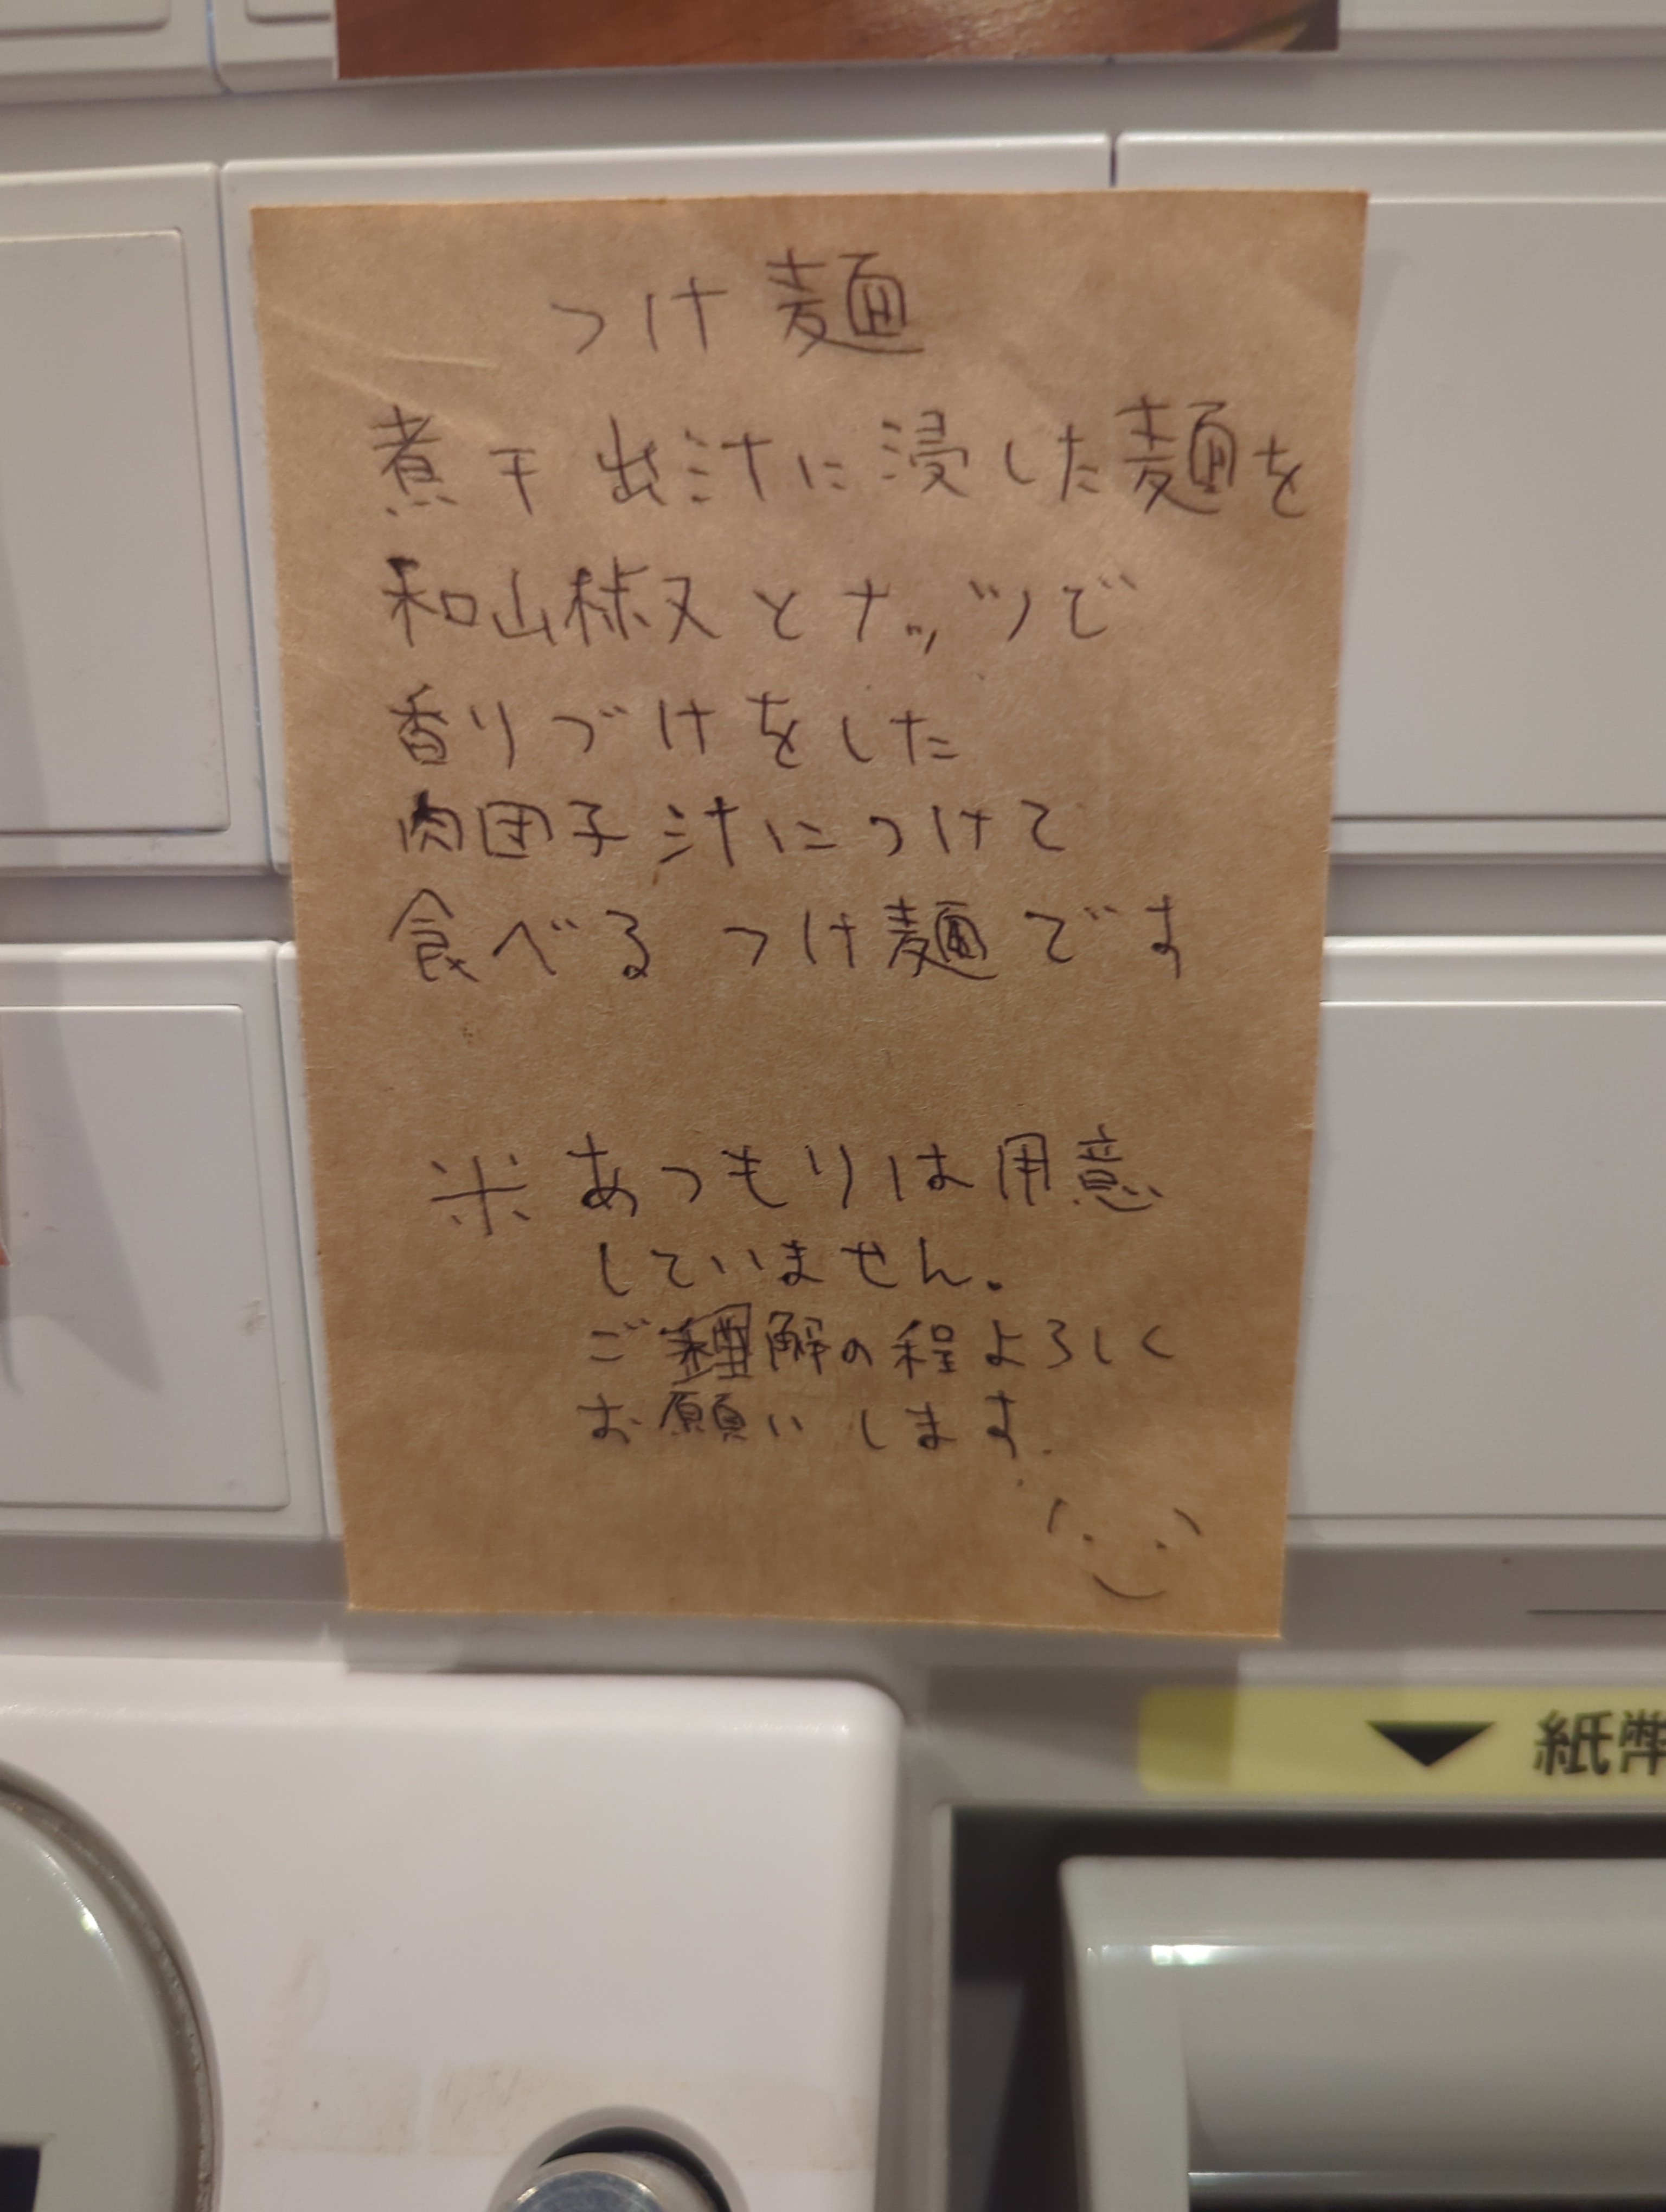 つけ麺
煮干出汁に浸した麺を
和山椒とナッツで
香りづけをした
肉団子汁につけて
食べるつけ麺です
※あつもりは用意
していません。
ご理解の程よろしく
お願いします.
▼紙幣